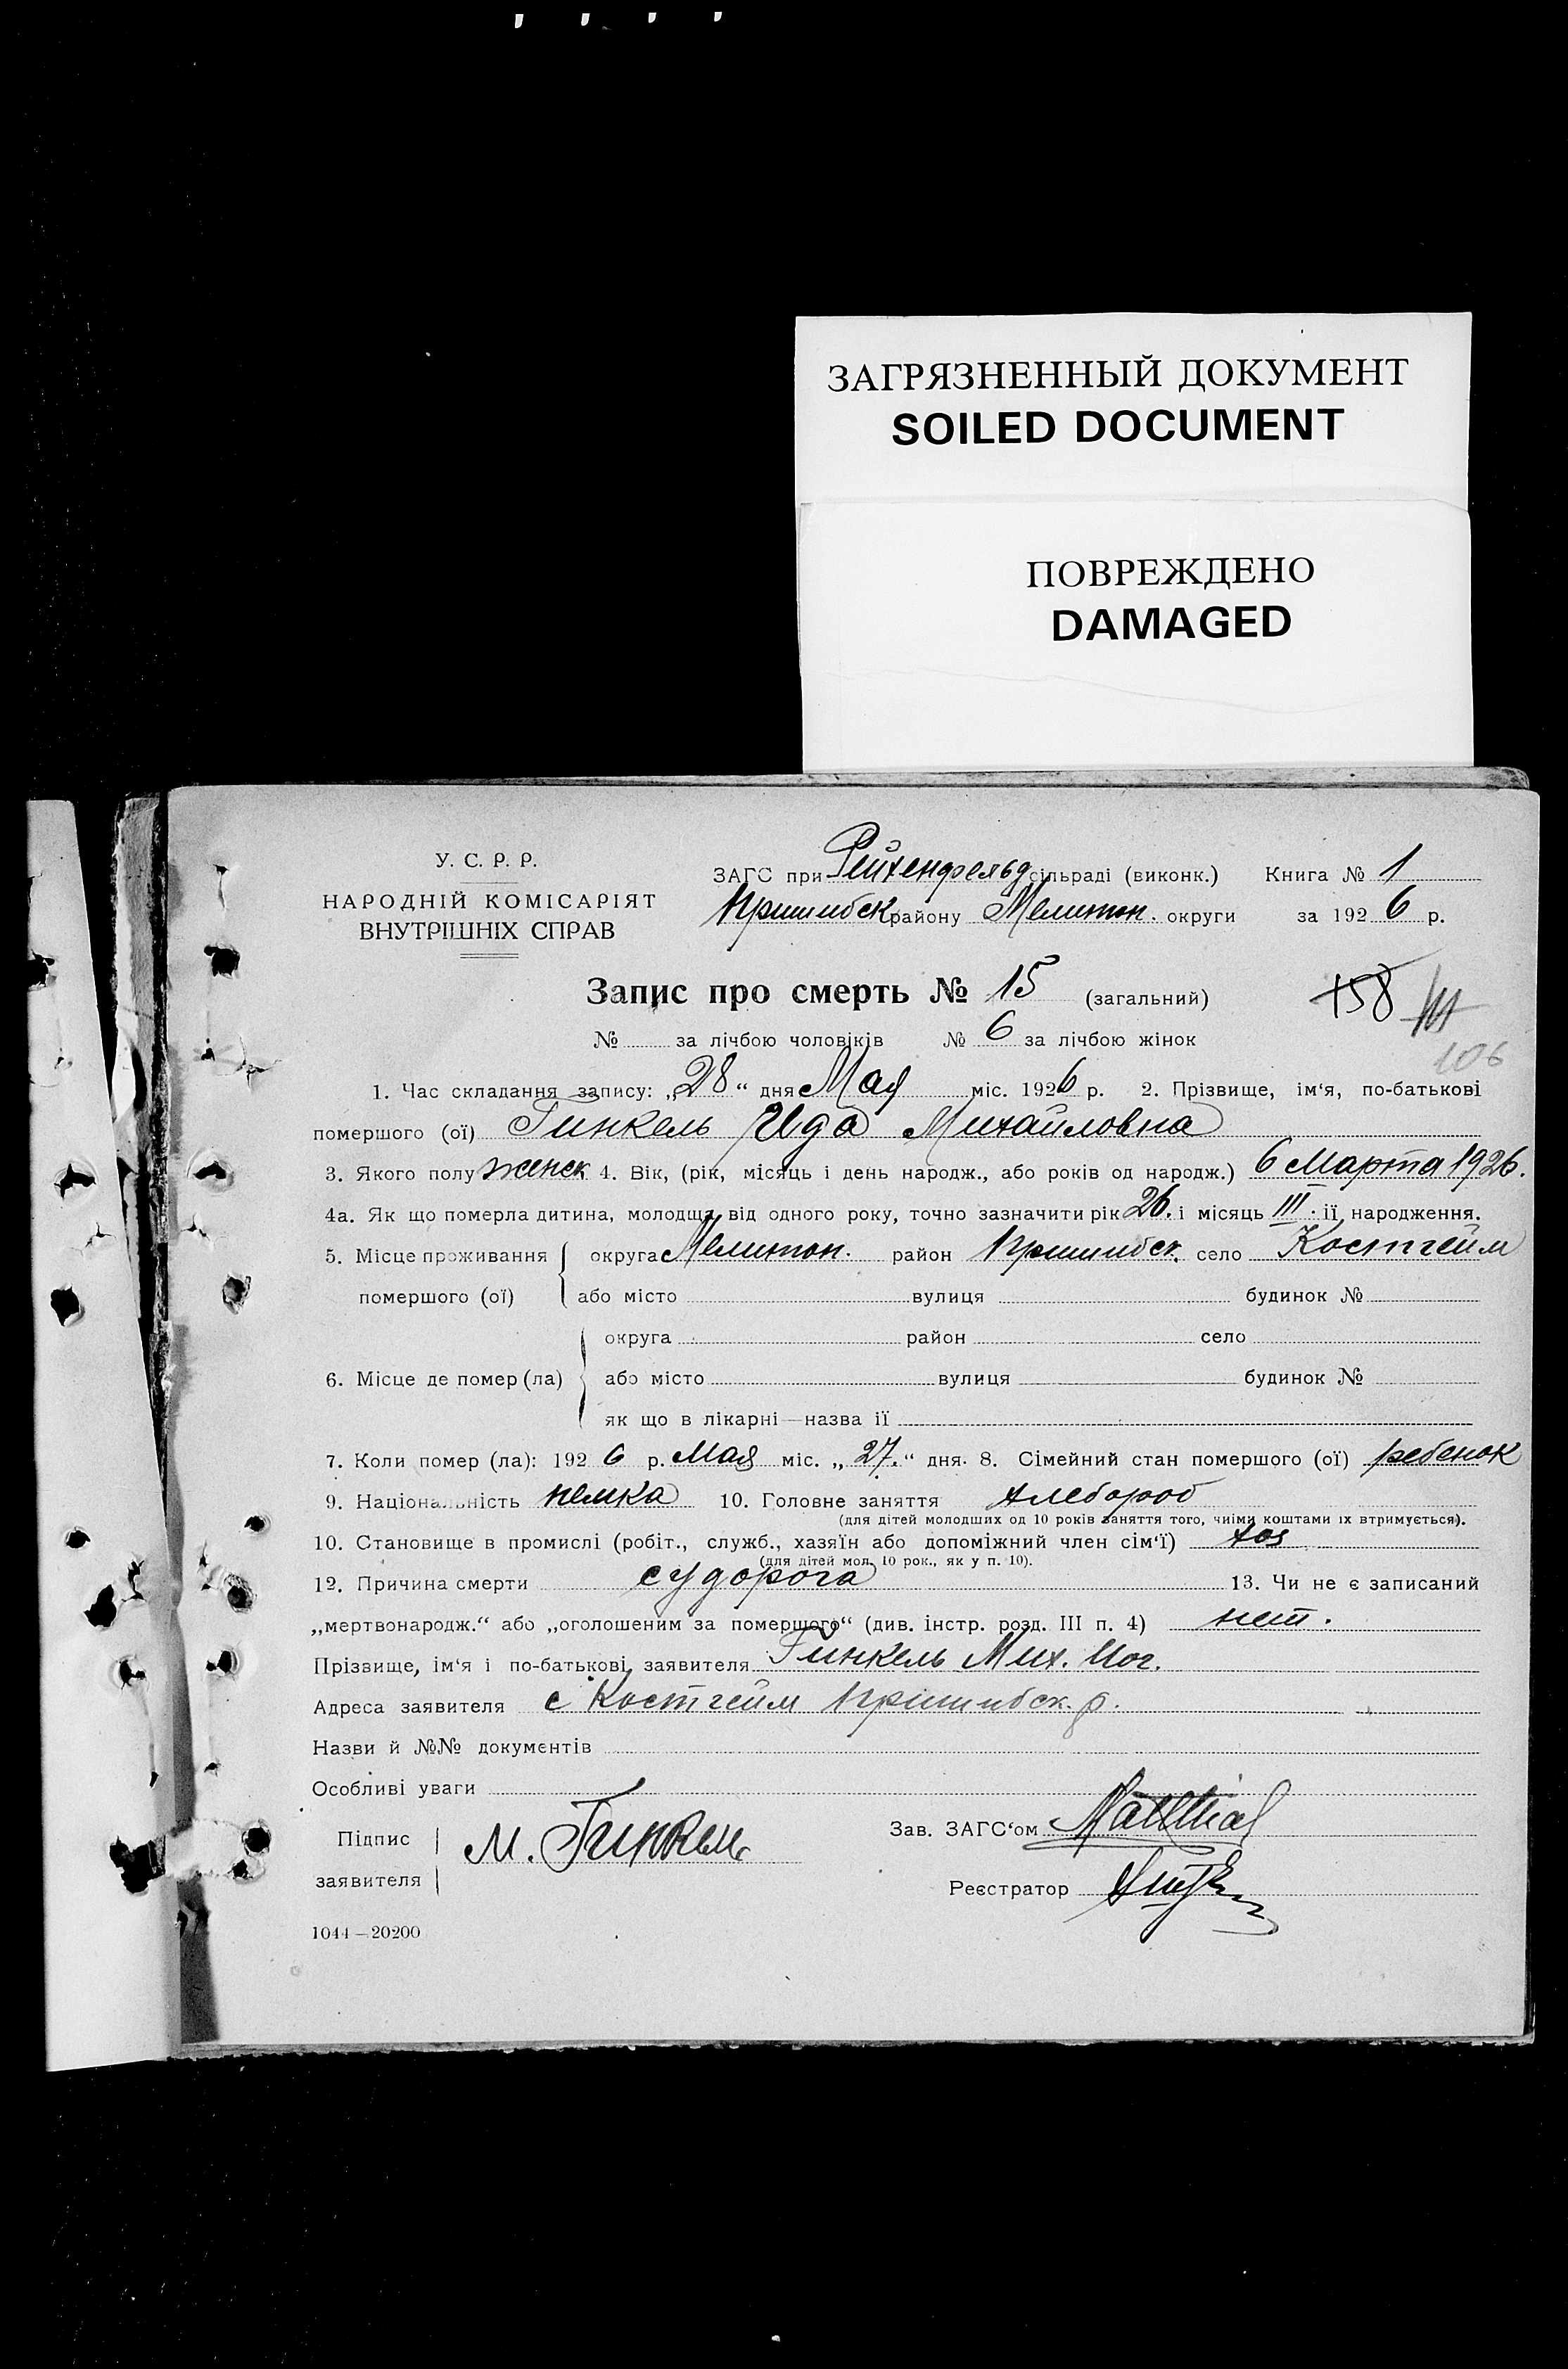 ЗАГРЯЗНЕННЫЙ ДОКУМЕНТ
SOILED DOCUMENT
ПОВРЕЖДЕНО
DAMAGED
У. С. Р. Р.
НАРОДНІЙ КОМІСАРІЯТ
ВНУТРІШНІХ СПРАВ
ЗАГС при Рейхенфельд сільраді (виконк.) Книга № 1
Пришибск району Мелитоп. округи за 1926 р.
Запис про смерть № 15 (загальний)
158
106
№ за лічбою чоловіків № 6 за лічбою жінок
1. Час складання запису: „28“ дня Мая міс. 1926 р. 2. Прізвище, ім‘я, по-батькові
помершого (ої) Гинкель Ида Михайловна
3. Якого полу женск 4. Вік, (рік, місяць і день народж., або років од народж.) 6 Марта 1926.
4а. Як що померла дитина, молодща від одного року, точно зазначити рік 26. і місяць III. її народження.
5. Місце проживання округа Мелитоп. район Пришибск. село Костгейм
помершого (ої) або місто вулиця будинок №
округа район село
6. Місце де помер (ла) або місто вулиця будинок №
як що в лікарні—назва її
7. Коли помер (ла): 1926 р. Мая міс. „27.“ дня. 8. Сімейний стан помершого (ої) ребенок
9. Національність немка 10. Головне заняття хлебороб
(для дітей молодших од 10 років заняття того, чиїми коштами їх втримується).
10. Становище в промислі (робіт., служб., хазяїн або допоміжний член сім‘ї) хоз
(для дітей мол. 10 рок., як у п. 10).
12. Причина смерти судорога 13. Чи не є записаний
„мертвонародж.“ або „оголошеним за помершого“ (див. інстр. розд. III п. 4) нет.
Прізвище, ім‘я і по-батькові заявителя Гинкель Мих. Иог.
Адреса заявителя с Костгейм Пришибск. р.
Назви й №№ документів
Особливі уваги
Підпис
заявителя
М. Гинкель
Зав. ЗАГС‘ом
Реєстратор
1044—20200